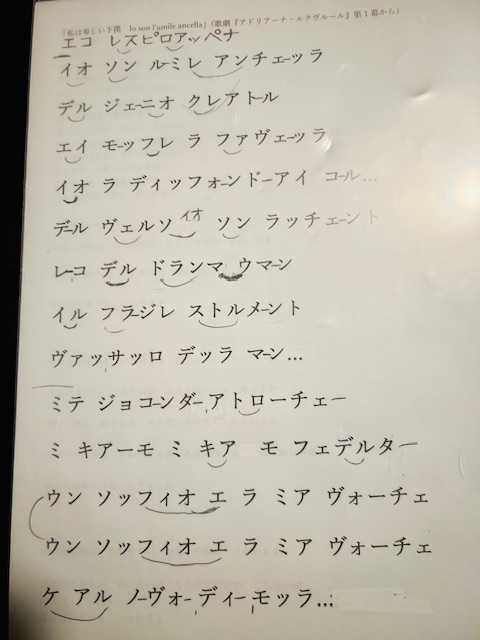 「私は卑しい下僕 Io son l'umile ancella」(歌劇『アドリアーナ・ルクヴルール』第1幕から)
エコ レスピロアッペナ
イオ ソン ルーミレ アンチェーッラ
デル ジェーニオ クレアトール
エイ モーッフレ ラ ファヴェーッラ
イオ ラ ディッフォーンドーアイ コール…
デール ヴェルソ イオ ソン ラッチェーント
レーコ デル ドランマ ウマーン
イル フラージレ ストルメーント
ヴァッサッロ デッラ マーン…
ミテ ジョコーンダーアトローチェー
ミ キアーモ ミ キア モ フェデルター
ウン ソッフィオ エ ラ ミア ヴォーチェ
ウン ソッフィオ エ ラ ミア ヴォーチェ
ケ アル ノーヴォーディーモッラ…